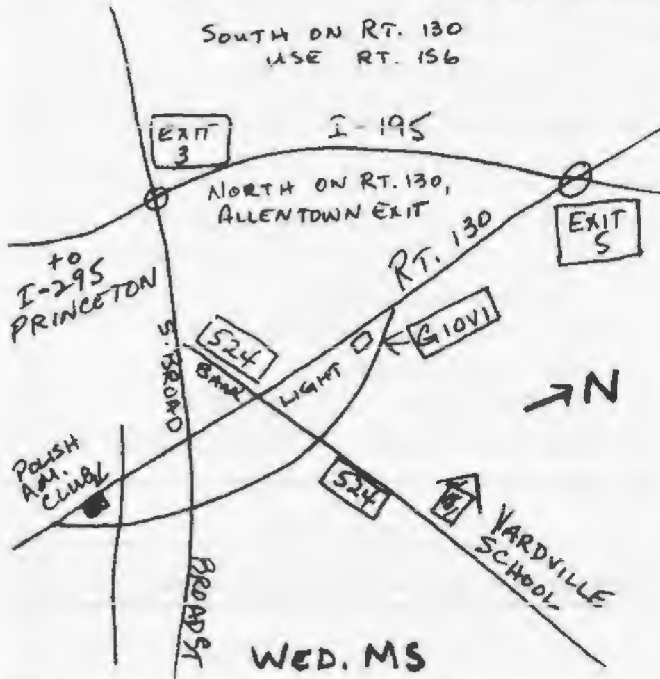 SOUTH ON RT. 130
USE RT. 156
EXIT
3
I-195
NORTH ON RT. 130,
ALLENTOWN EXIT
EXIT
5
to
I-295
PRINCETON
RT. 130
S. BROAD
524
BANK
LIGHT
GIOVI
N
POLISH
AM.
CLUB
524
YARDVILLE
SCHOOL
BROAD ST
WED. MS